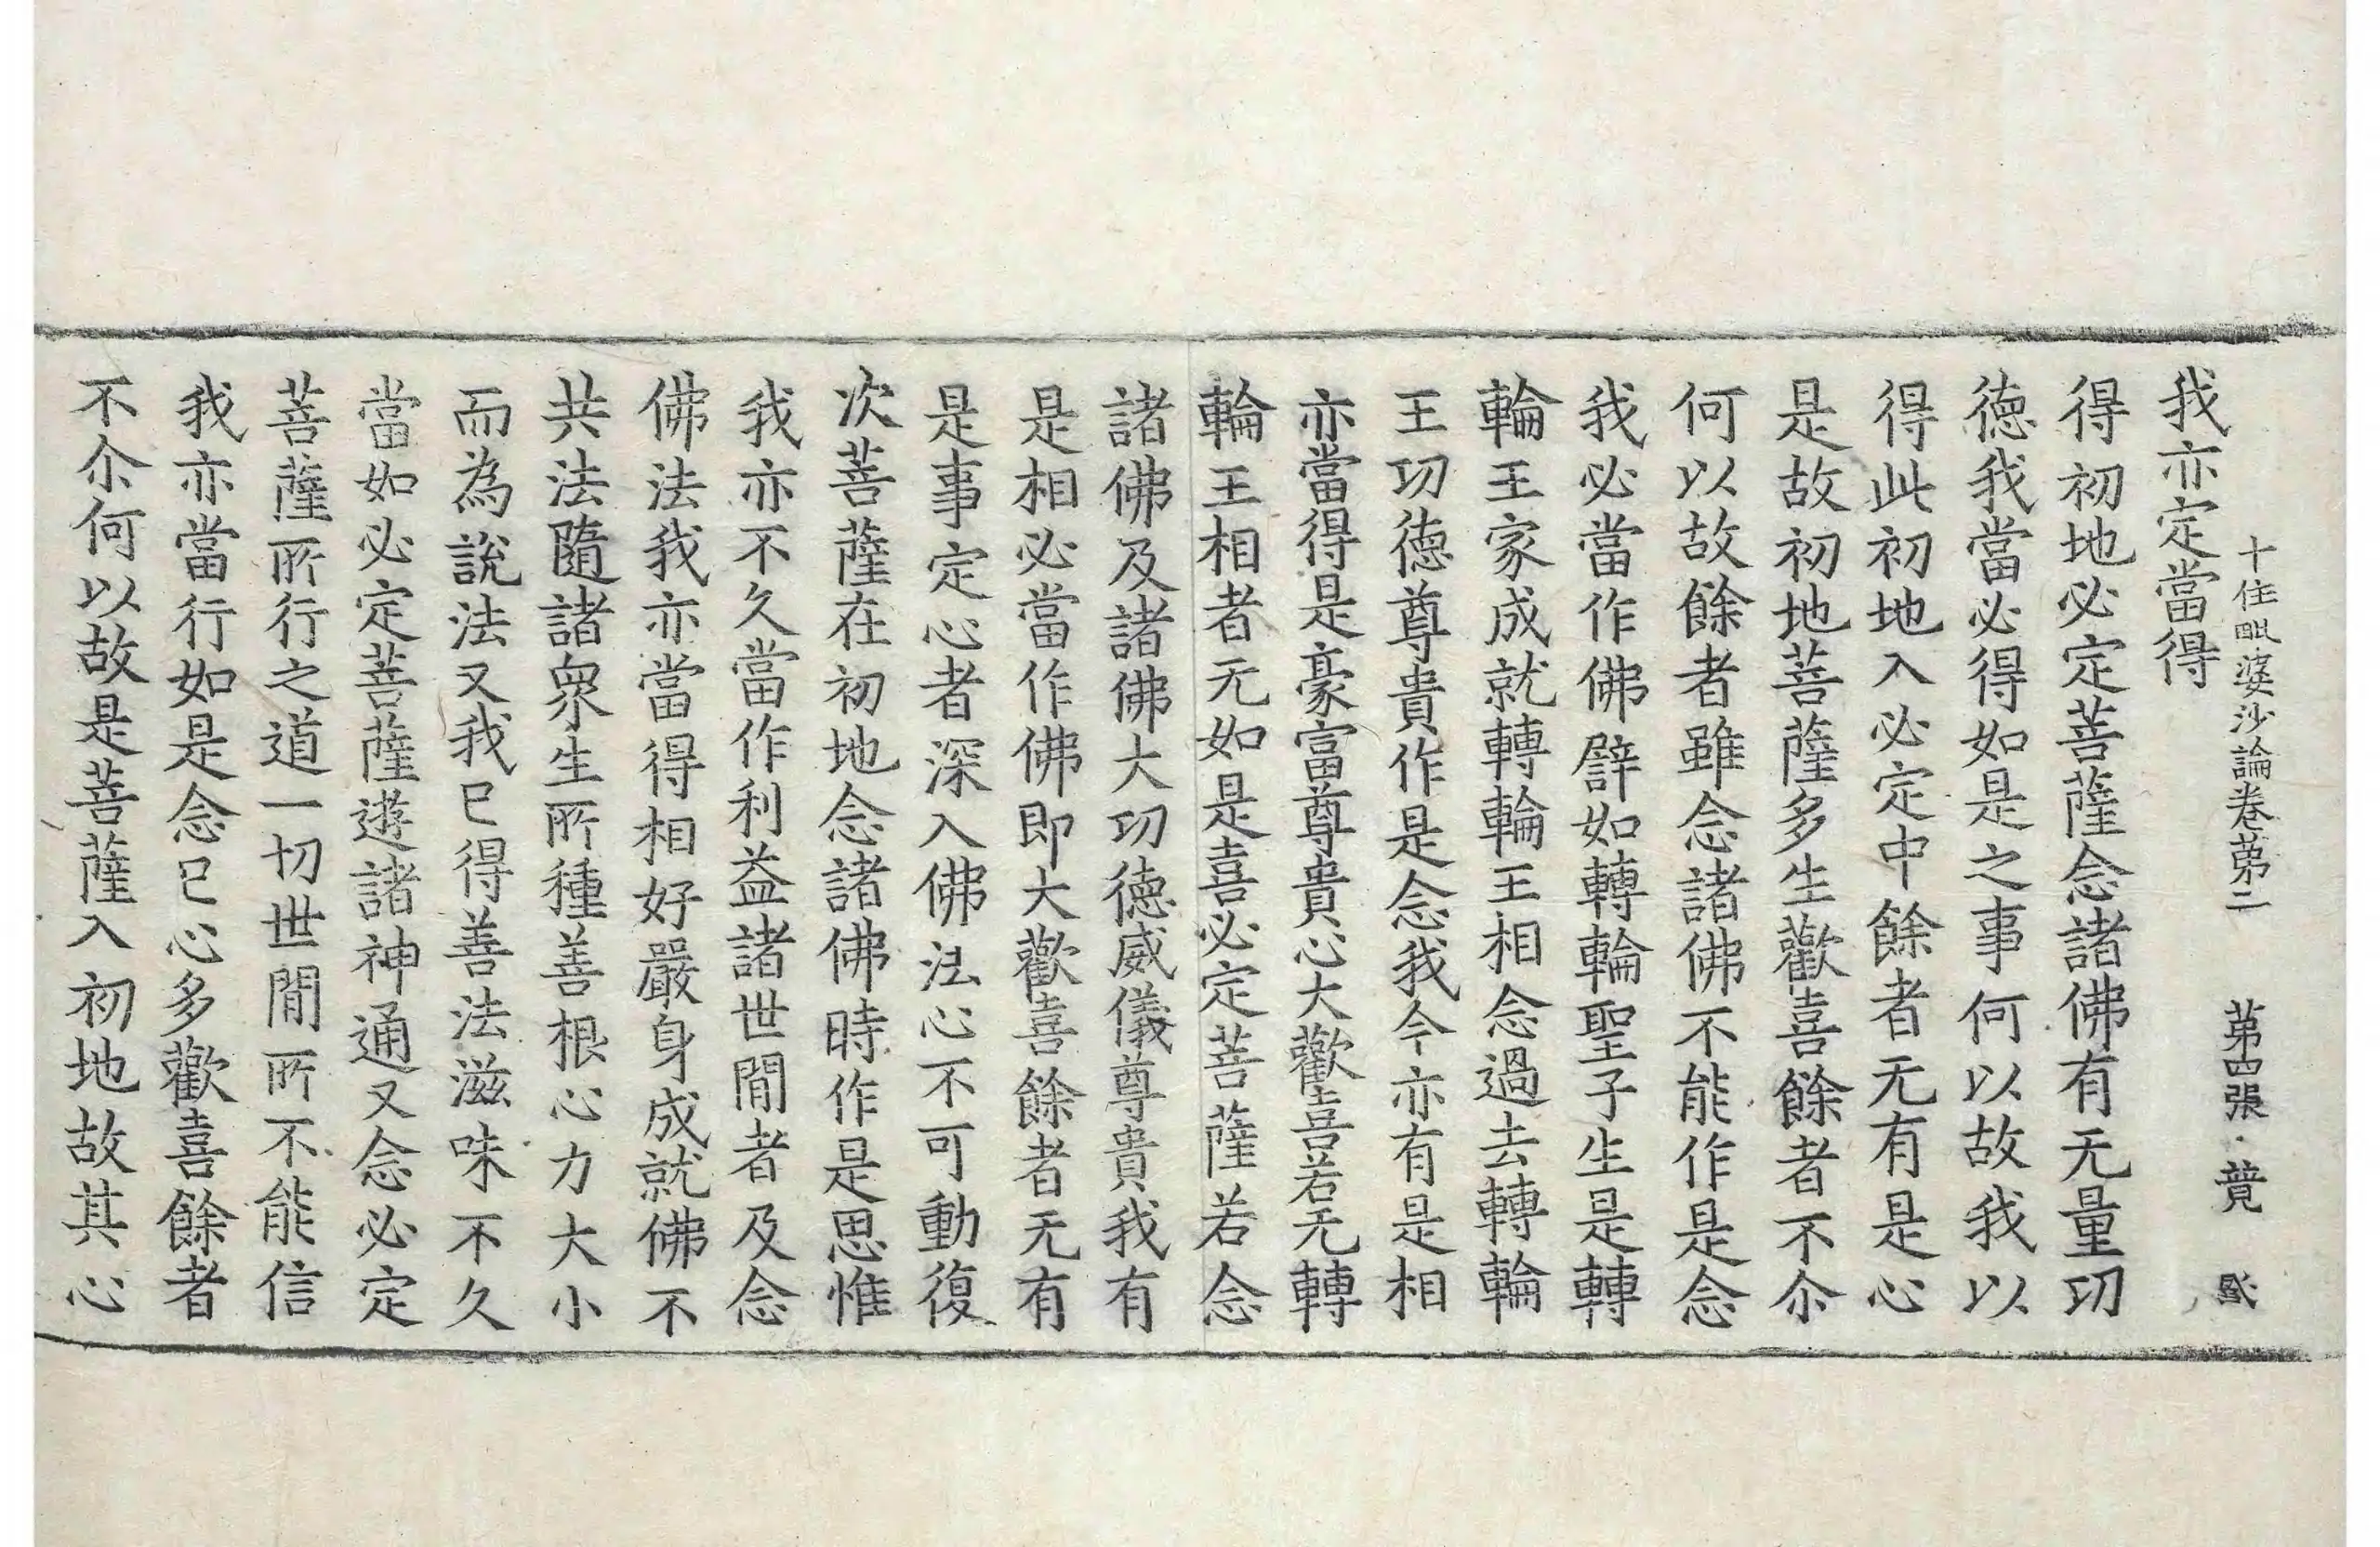 十住毗婆沙論卷苐二 苐四張 䕞
我亦定當得
得初地必定菩薩念諸佛有无量功
德我當必得如是之事何以故我以
得此初地入必定中餘者无有是心
是故初地菩薩多生歡喜餘者不尒
何以故餘者雖念諸佛不能作是念
我必當作佛譬如轉輪聖子生是轉
輪王家成就轉輪王相念過去轉輪
王功德尊貴作是念我今亦有是相
亦當得是豪富尊貴心大歡喜若无轉
輪王相者无如是喜必定菩薩若念
諸佛及諸佛大功德威儀尊貴我有
是相必當作佛即大歡喜餘者无有
是事定心者深入佛法心不可動復
次菩薩在初地念諸佛時作是思惟
我亦不久當作利益諸世間者及念
佛法我亦當得相好嚴身成就佛不
共法隨諸衆生所種善根心力大小
而為說法又我已得善法滋味不久
當如必定菩薩遊諸神通又念必定
菩薩所行之道一切世間所不能信
我亦當行如是念已心多歡喜餘者
不尒何以故是菩薩入初地故其心